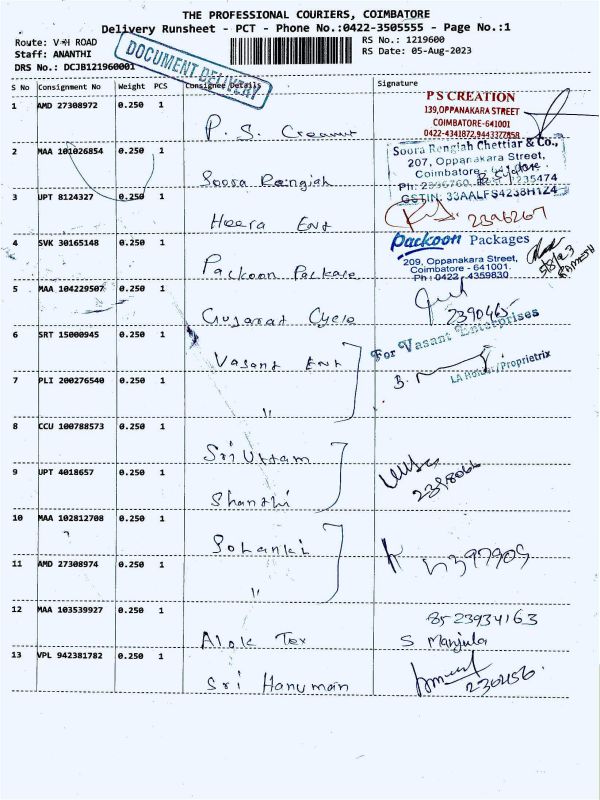 THE PROFESSIONAL COURIERS, COIMBATORE
Delivery Runsheet - PCT - Phone No.:0422-3505555 - Page No.:1
Route: V H ROAD
Staff: ANANTHI
DRS No.: DCJB121960001
RS No.: 1219600
RS Date: 05-Aug-2023
DOCUMENT DELIVERY
S No Consignment No Weight PCS Consignee Details Signature
1 AMD 27308972 0.250 1
P. S.
P S CREATION
139, OPPANAKARA STREET
COIMBATORE-641001
0422-4341872, 9443377858
2 MAA 101026854 0.250 1
Soora Rengiah
Soora Rengiah Chettiar & Co.,
207, Oppanakara Street,
Coimbatore
GSTIN: 33AALFS4238H1Z4
3 UPT 8124327 0.250 1
Heera Ent
2396267
4 SVK 30165148 0.250 1
Packoon Package
Packoon Packages
209, Oppanakara Street,
Coimbatore - 641001.
Ph : 0422 - 4359830
5/8/23
5 MAA 104229507 0.250 1
Gujarat Cycle
2390465
6 SRT 15000945 0.250 1
Vasant Ent
For Vasant Enterprises
7 PLI 200276540 0.250 1
"
B.
Proprietrix
8 CCU 100788573 0.250 1
Sri Uttam
9 UPT 4018657 0.250 1
Shanthi
2398066
10 MAA 102812708 0.250 1
Solanki
11 AMD 27308974 0.250 1
"
2397909
12 MAA 103539927 0.250 1
Alok Tex
8523934163
S Manjula
13 VPL 942381782 0.250 1
Sri Hanuman
230456